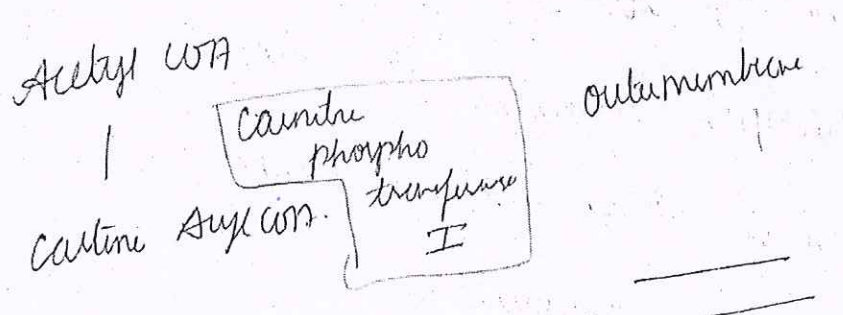 Acetyl COA
Carnitine
phospho
transferase
I
outermembrane
Acyl COA.